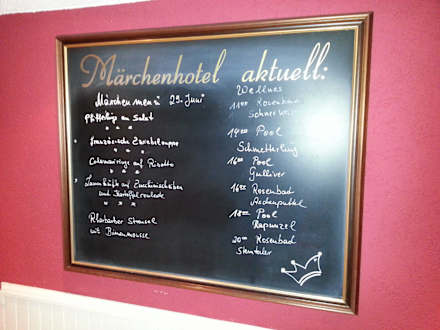 Märchenhotel aktuell:
Märchenmenü 29. Juni
Pfifferlinge am Salat
* * *
Französische Zwiebelsuppe
* * *
Calamariringe auf Risotto
* * *
Lammhüfte auf Zucchinischeiben
und Kartoffelroulade
* * *
Rhabarber Streusel
mit Birnenmousse
Wellnes
11 00 Rosenbad
14 00 Pool
Schmetterling
16 00 Pool
Gulliver
Rosenbad
Aschenputtel
18 00 Pool
Rapunzel
20 00 Rosenbad
Sterntaler